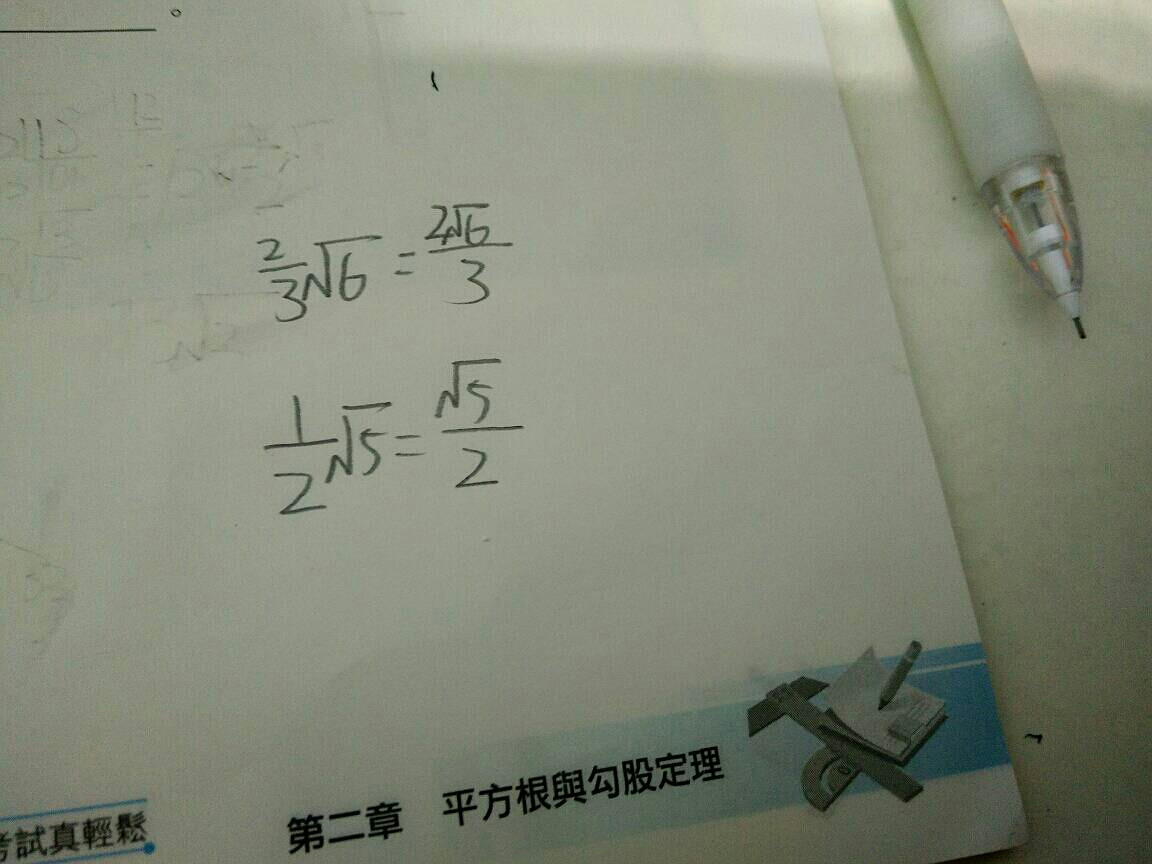 。
2/3√6 = 2√6/3
1/2√5 = √5/2
考試真輕鬆
第二章 平方根與勾股定理